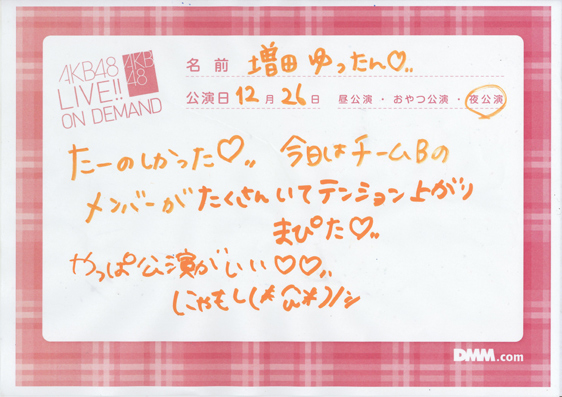 AKB48
LIVE!!
ON DEMAND
AKB
48
名前 増田 ゆったん♡〟
公演日 12月26日 昼公演・おやつ公演・夜公演
たーのしかった♡〟 今日はチームBの
メンバーがたくさんいてテンション上がり
まぴた♡〟
やっぱ公演がいい♡♡〟
にゃもし(*^ω^*)ノシ
DMM.com